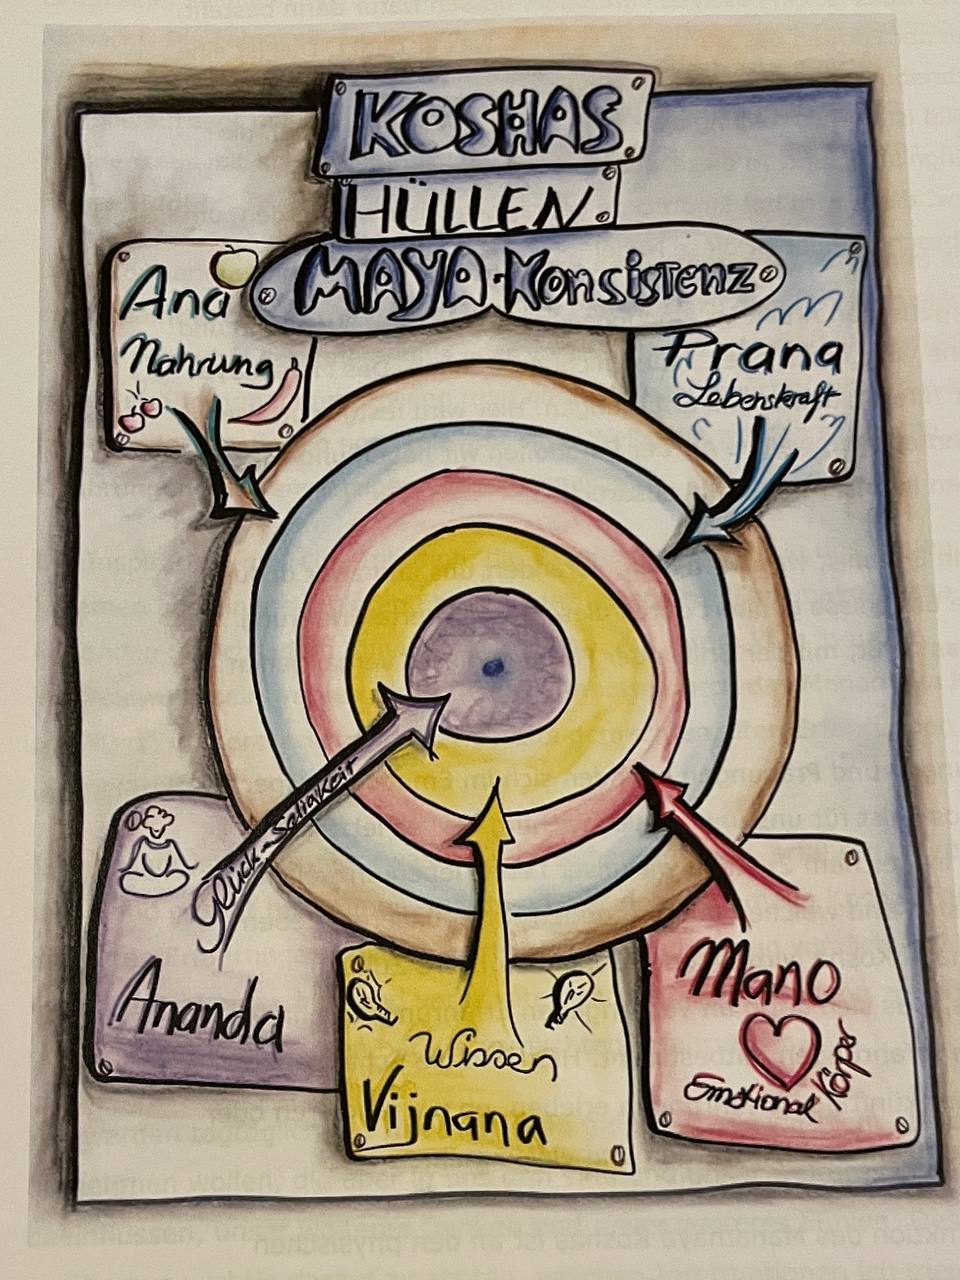 KOSHAS
HÜLLEN
MAYA-Konsistenz
Ana
Nahrung
Prana
Lebenskraft
Glück-Seligkeit
Ananda
Wissen
Vijnana
Mano
Emotional
Körper